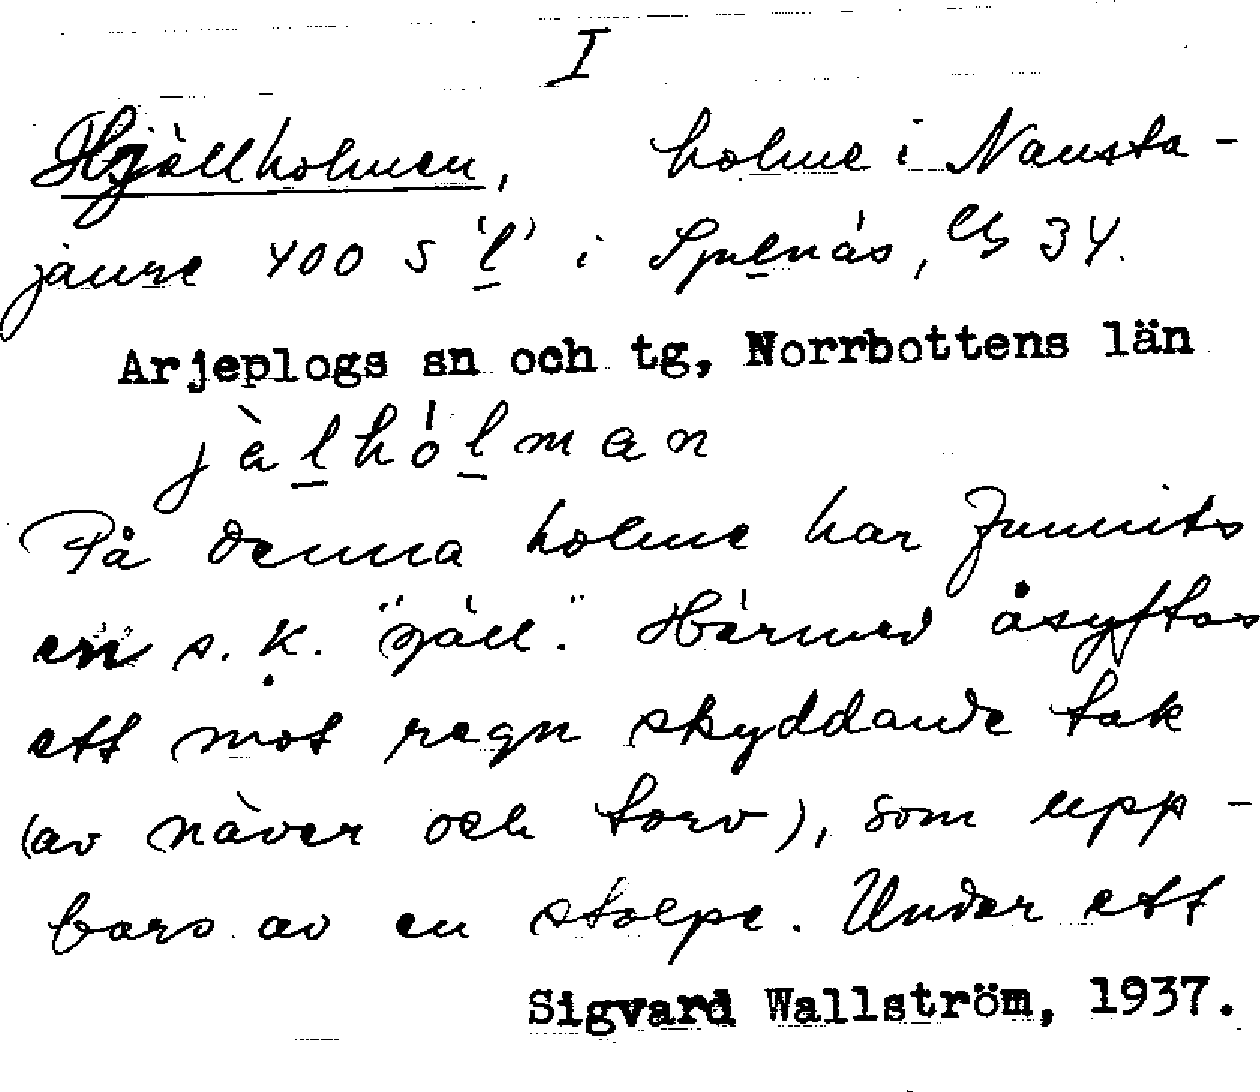 I
Hjällholmen, holme i Nausta-
jaure 400 S 'l' i Spenás, Gb 34.
Arjeplogs sn och tg, Norrbottens län
jàlhólman
På denna holme har funnits
en s.k. "jäll". Härmed åsyftas
ett mot regn skyddande tak
(av näver och torv), som upp-
bars av en stolpe. Under ett
Sigvard Wallström, 1937.